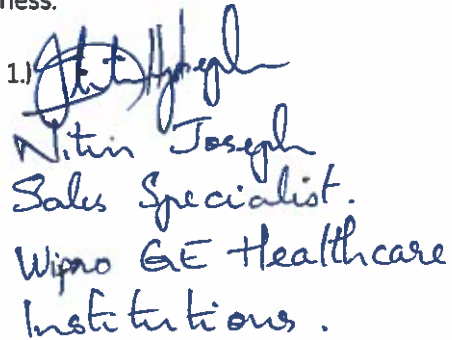 ness.
1.)
Nitin Joseph
Sales Specialist.
Wipro GE Healthcare
Institutions.